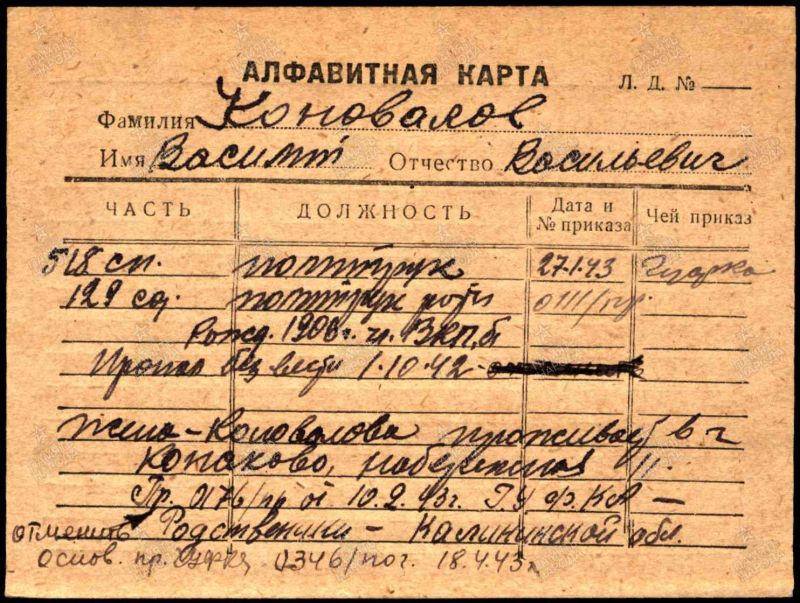 АЛФАВИТНАЯ КАРТА
Л. Д. №
Фамилия Коновалов
Имя Василий Отчество Васильевич
ЧАСТЬ ДОЛЖНОСТЬ Дата и № приказа Чей приказ
518 сп. политрук 27.1.43
129 сд. политрук роты
Рожд. 1906 г. чл. ВКП,б
Пропал без вести 1.10.42
жена - Коновалова проживает в г
Конаково, набережная 11.
Пр. 0176/пр от 10.2.43г. ГУФКА —
отменить Родственики - Калининской обл.
основ. пр. ГУФКА 0346/пог. 18.4.43г